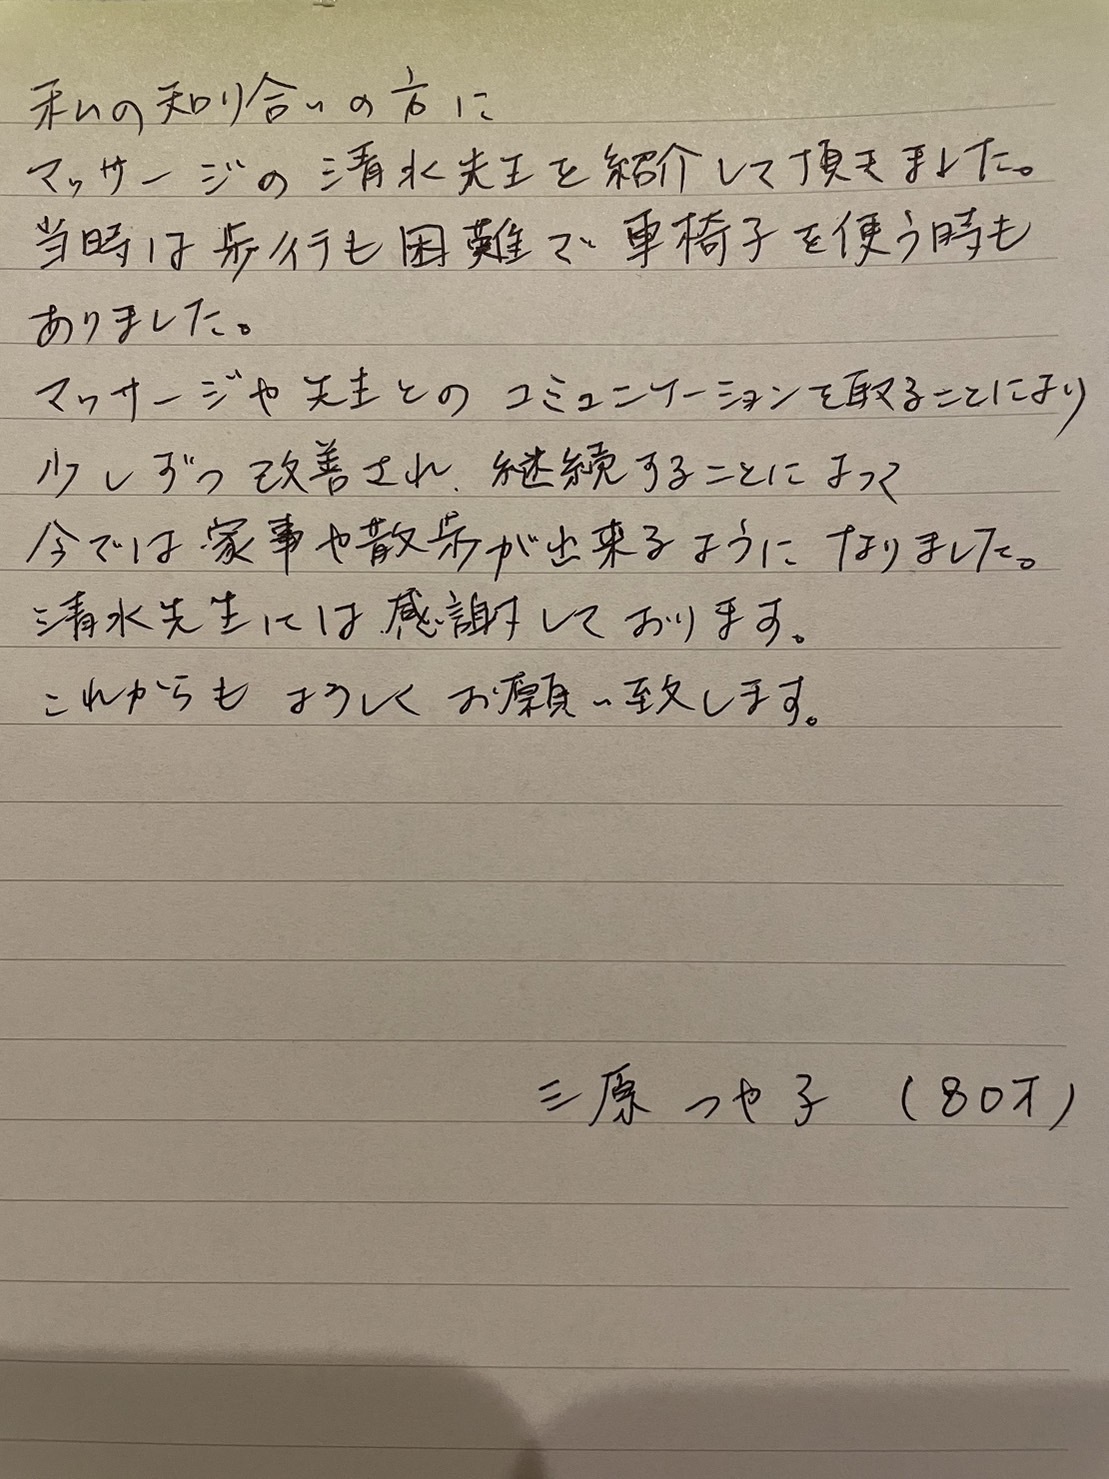 私の知り合いの方に
マッサージの清水先生を紹介して頂きました。
当時は歩行も困難で車椅子を使う時も
ありました。
マッサージや先生とのコミュニケーションを取ることにより
少しずつ改善され、継続することによって
今では家事や散歩が出来るようになりました。
清水先生には感謝しております。
これからもよろしくお願い致します。
三原 つや子 (80才)